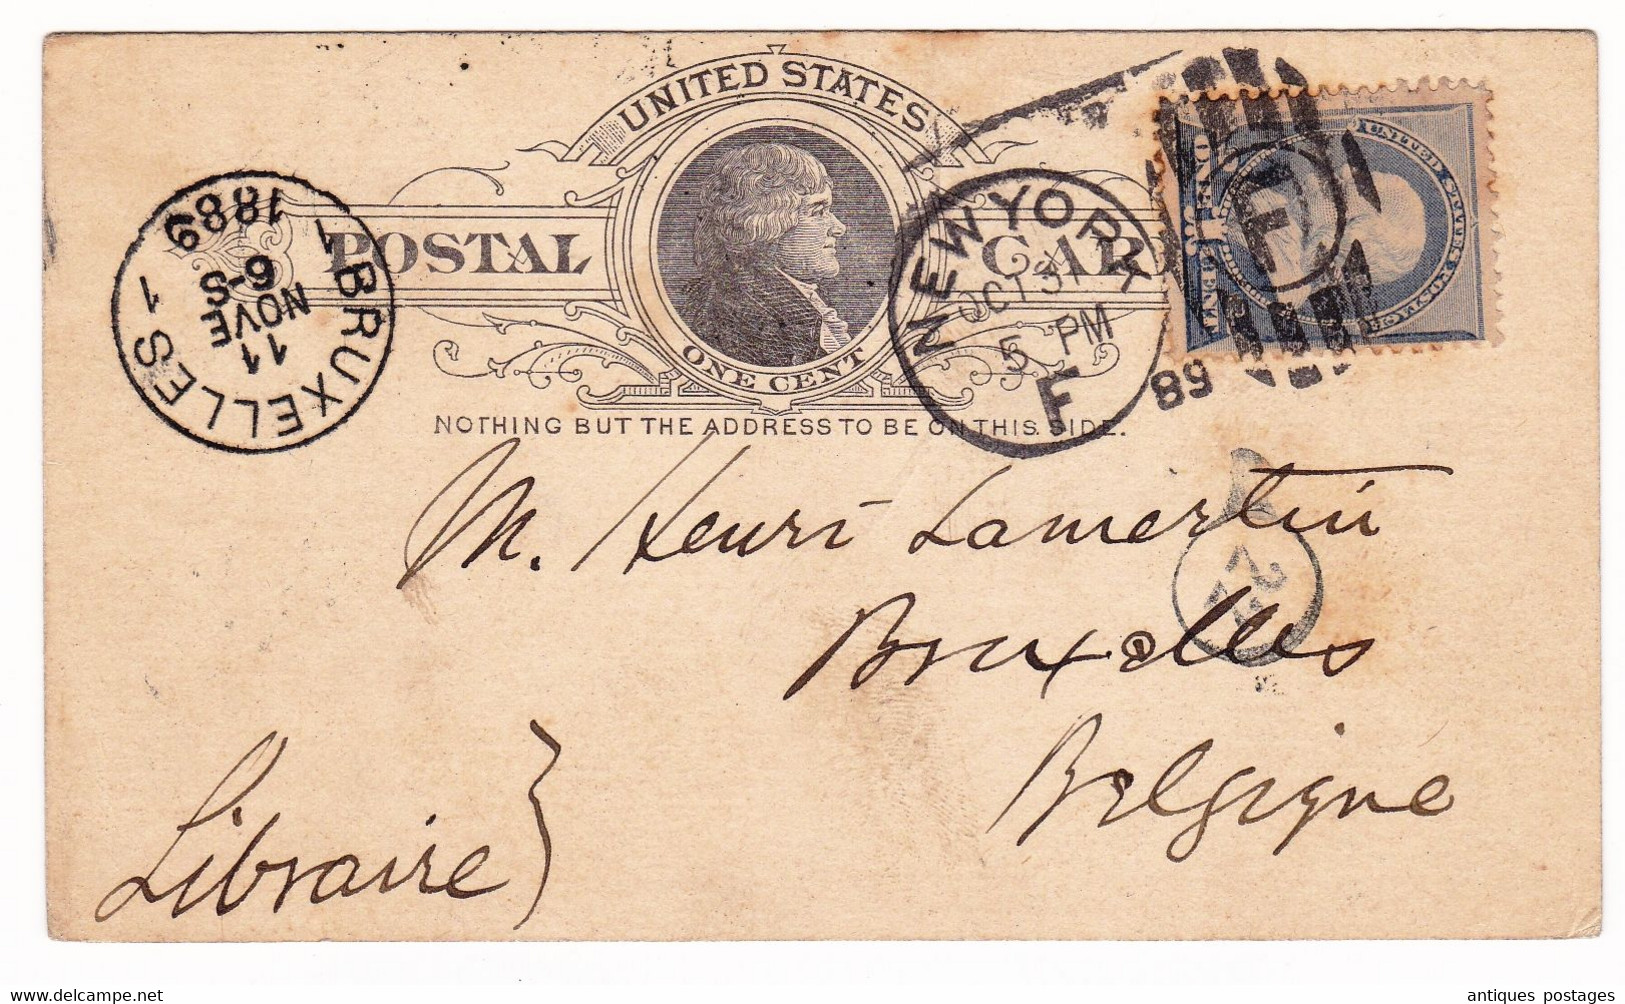 UNITED STATES
POSTAL CARD
ONE CENT
NOTHING BUT THE ADDRESS TO BE ON THIS SIDE.
NEW YORK
OCT 31
5 PM
F
89
F
UNITED STATES POSTAGE
ONE CENT
1 BRUXELLES 1
11
NOVE
6-S
1889
M. Henri Lamertin
Bruxelles
Belgique
Libraire}
antiques postages